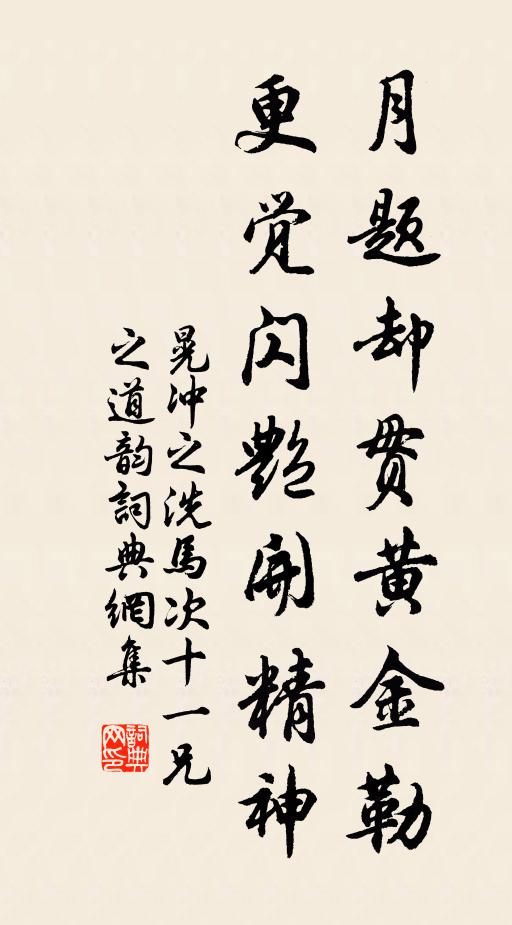 月题却贯黄金勒
更觉闪艳开精神
晁冲之洗馬次十一兄
之道韵詞典網集
詞典网印